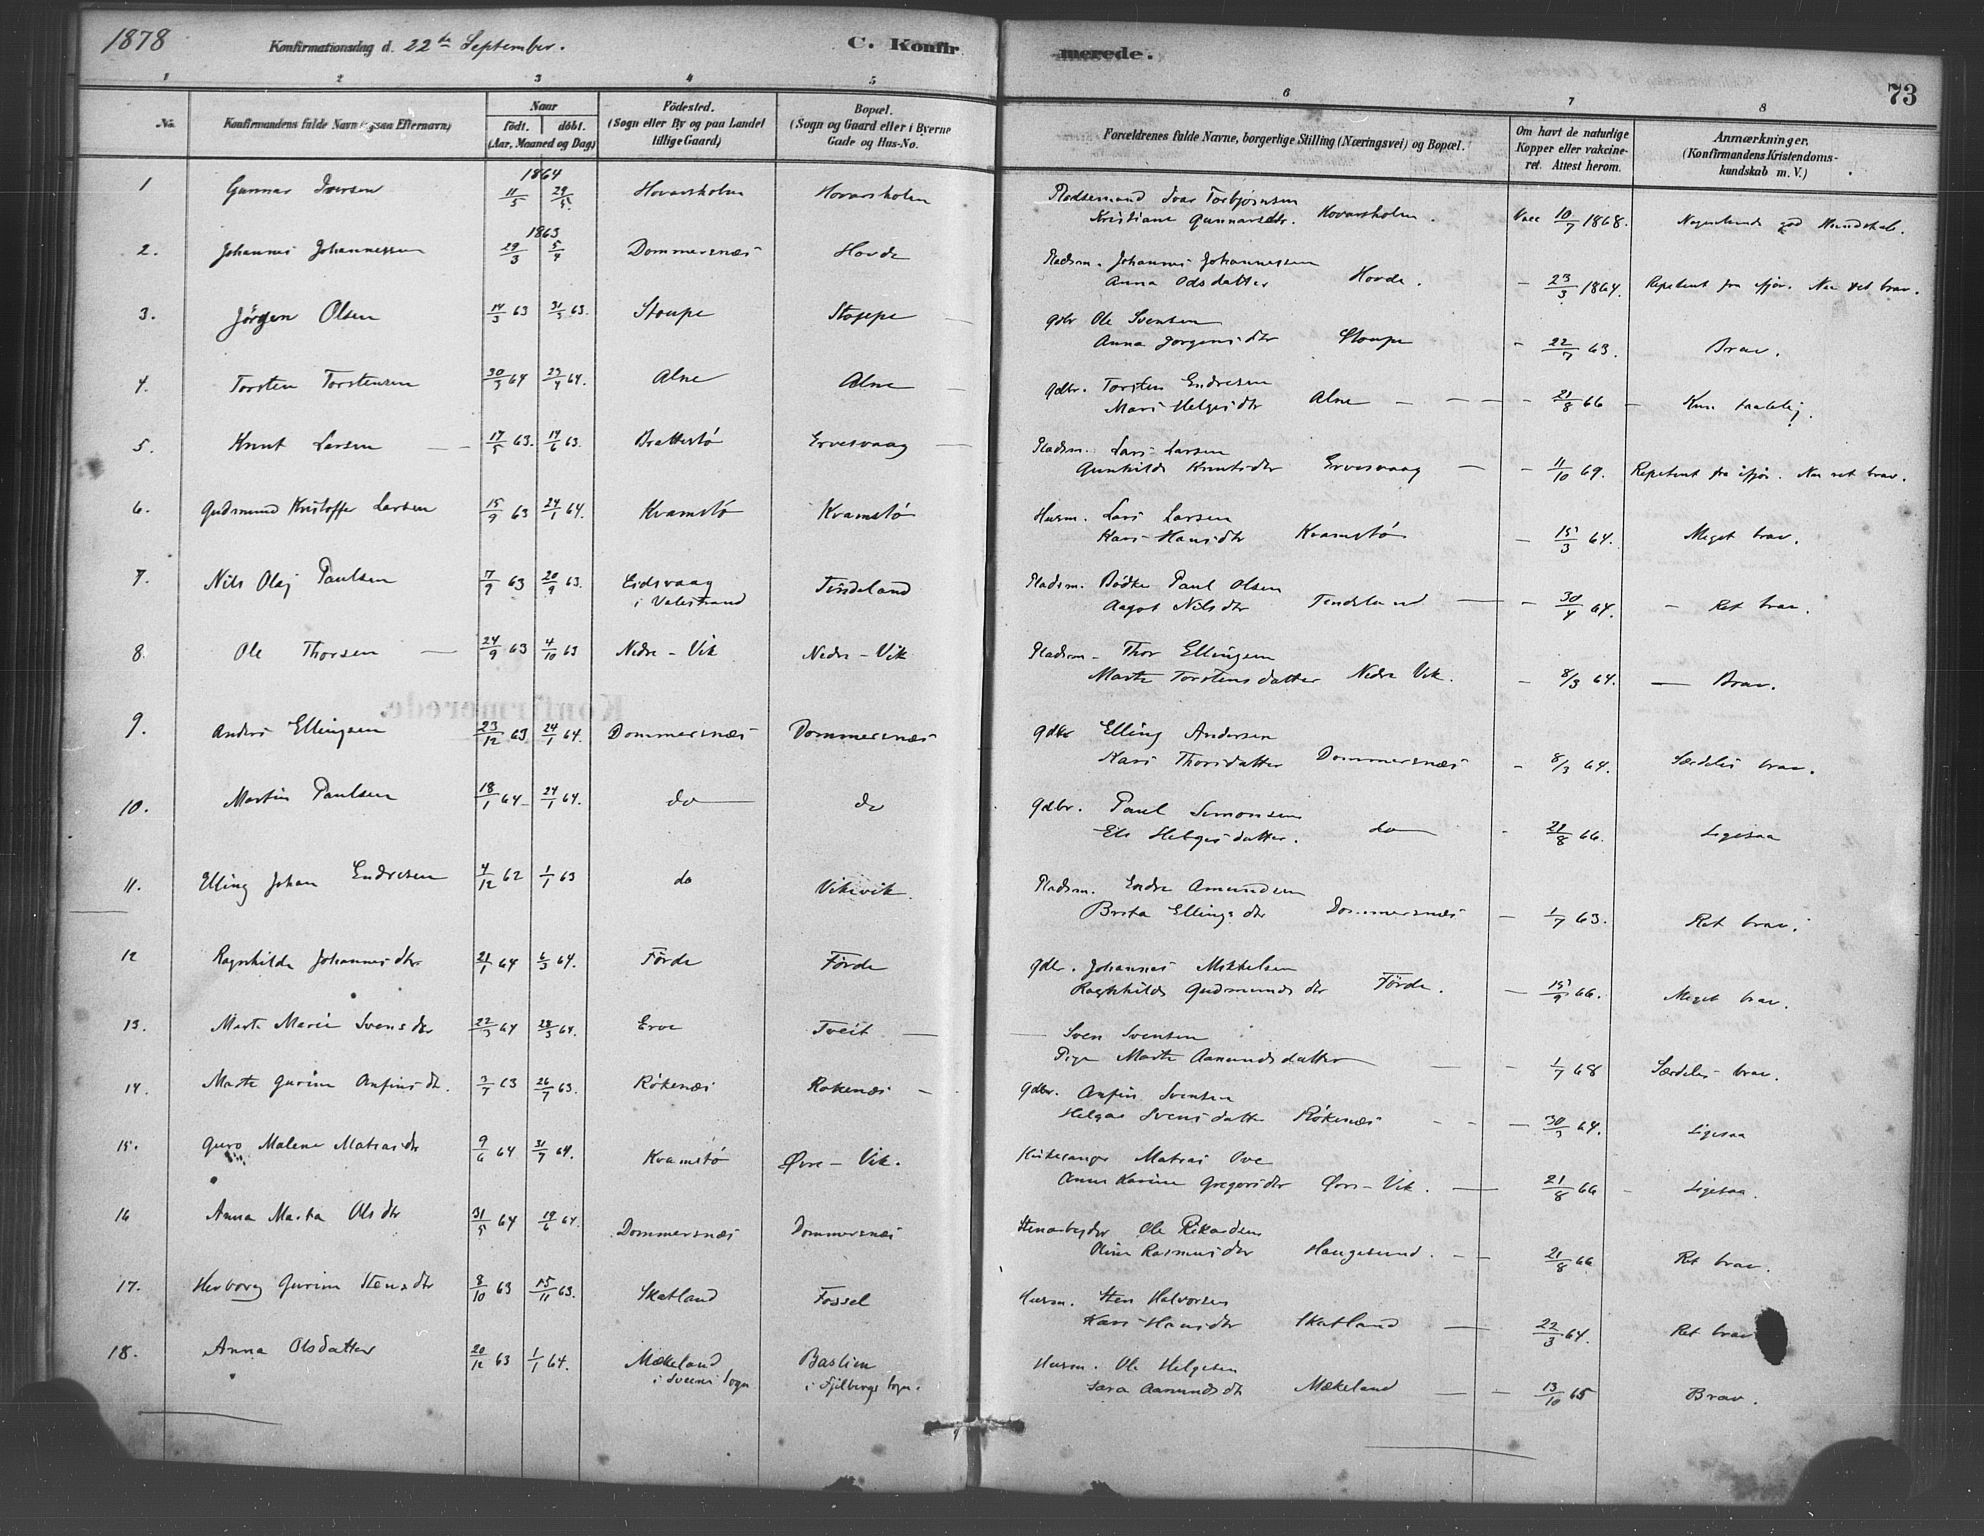 1878 Konfirmationsdag d. 22de September. C. Konfir merede. 73
1 2 3 4 5 6 7 8
No. Konfirmandens fulde Navn (ogsaa Efternavn) Naar født. døbt. (Aar, Maaned og Dag) Födested. (Sogn eller By og paa Landet tillige Gaard) Bopæl. (Sogn og Gaard eller i Byerne Gade og Hus-No. Forældrenes fulde Navne, borgerlige Stilling (Næringsvei) og Bopæl. Om havt de naturlige Kopper eller vakcineret. Attest herom. Anmærkninger. (Konfirmandens Kristendomskundskab m. V.)
1 Gunnar Iversen 1864 11/5 29/5 Hovarsholm Hovarsholm Pladsemand Ivar Torbjørnsen
Kristiane Gunnarsdtr. Hovarsholm. Vacc 10/7 1868. Nogenlunde god Kundskab.
2. Johannes Johannessen 1863 29/3 5/4 Dommersnæs Hovde Pladsm. Johannes Johannessen
Anna Odsdatter Hovde. - 23/3 1864. Repetent fra ifjor. Nu ret brav.
3. Jörgen Olsen 14/3 63 31/5 63. Stoupe Stoppe Gdbr Ole Svensen
Anna Jorgensdtr Stoupe - 22/7 63. Brav.
4. Torsten Torstensen 30/3 64 23/4 64. Alne Alne Gdbr. Torsten Endresen
Mari Helgesdtr Alne - 21/8 66 - Kun taalelig.
5. Knut Larsen 17/5 63. 14/6 63. Brattestø Ervesvaag Pladsm. Lars Larsen
Gunhilde Knutsdtr Ervesvaag - 11/10 69. Repetent fra ifjor. Nu ret brav.
6. Gudmund Kristoffer Larsen 15/9 63 24/1 64. Kvamstø Kvamstø Husm. Lars Larsen
Kari Hansdtr Kvamstø - 15/3 64. Meget brav.
7. Nils Olaj Paulsen 7/9 63 20/9 63. Eidsvaag
i Valestrand Tindeland Pladsm. Bödker Paul Olsen
Aagot Nilsdtr Tendeland - 30/4 64. - Ret brav.
8. Ole Thorsen 24/9 63 4/10 63 Nedre-Vik Nedre-Vik Pladsm- Thor Ellingsen
Marta Torstensdatter Nedre Vik. - 8/3 64. Brav.
9. Anders Ellingsen 23/12 63 24/1 64. Dommersnæs Dommersnæs Gdbr Elling Andersen
Kari Thorsdatter Dommersnæs - 8/3 64. Særdeles brav.
10. Martin Paulsen 18/1 64 24/1 64. do do Gdbr. Paul Simonsen
Eli Helgesdatter. do - 21/8 66. Ligesaa
11. Elling Johan Endresen 4/12 62 1/1 63 do Vikevik. Pladsm. Endre Amundsen
Brita Ellingsdtr Dommersnæs - 1/7 63. Ret brav.
12 Ragnhilde Johannesdtr 21/1 64 6/3 64. Förde Förde Gdbr. Johannes Mikkelsen
Ragnhilde Gudmundsdtr Förde. - 15/9 66. Meget brav.
13. Marta Marie Svensdtr 22/3 64 28/3 64. Erve Tveit Sven Svensen
Pige Marta Aamundsdatter - 1/7 68 Særdeles brav.
14. Marte Gurine Anfinsdt. 3/7 63 26/7 63. Rökenæs Rökenæs Gdbr. Anfin Svensen
Helga Svensdatter Rökenæs - 30/3 64. Ligesaa
15. Guro Malene Matiasdtr 9/6 64 31/7 64. Kvamstø Øvre-Vik. Kirkesanger Matias Ove
Anna Karine Gregersdtr Øvre-Vik. 21/8 66 - Ligesaa.
16 Anna Marta Olsdtr 31/5 64 19/6 64. Dommersnæs Dommersnæs Stenarbejder Ole Rikardsen
Oline Rasmusdtr Haugesund. - 21/8 66 Ret brav.
17. Herborg Gurine Stensdtr 8/10 63 15/11 63. Skatland Fossel Husm. Sten Halvorsen
Kari Hansdtr Skatland 22/3 64. Ret brav
18. Anna Olsdatter 20/12 63 1/1 64. Mækeland
i Sveens Sogn Baslien
i Fjelbergs Sogn. Husm. Ole Helgesen
Sara Aamundsdtr Mækeland - 13/10 65 Brav.